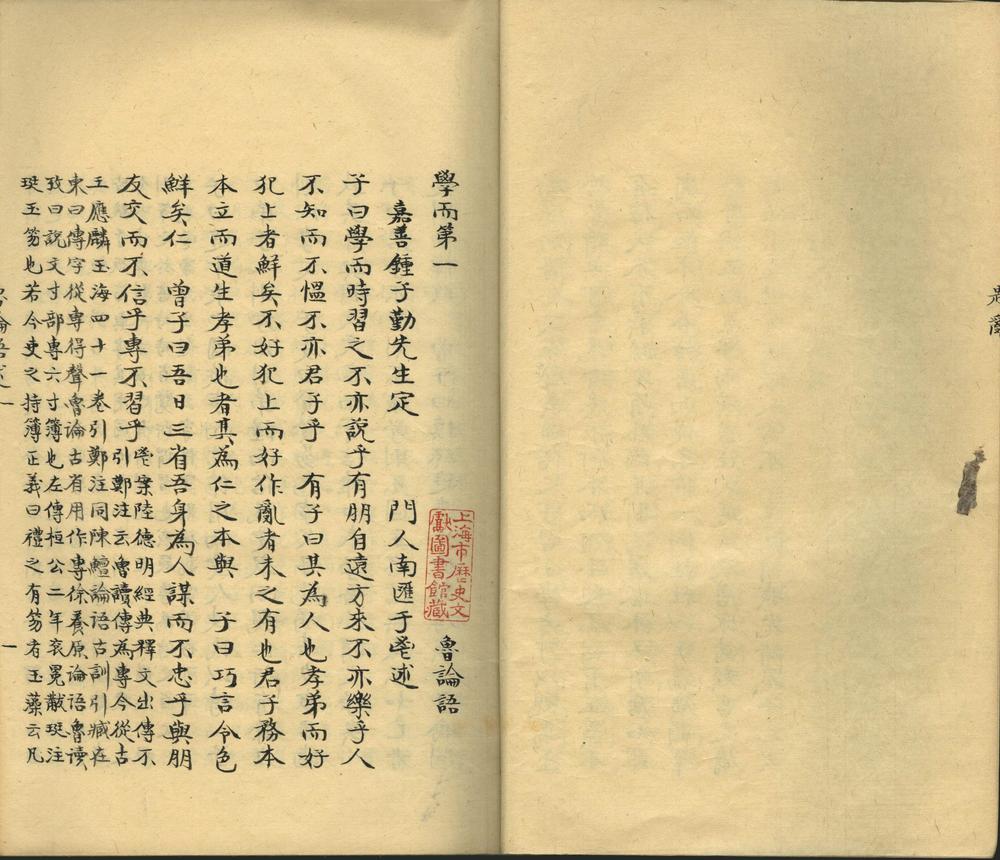 學而第一 魯論語
嘉善鍾子勤先生定 門人南匯于鬯述
子曰學而時習之不亦說乎有朋自遠方來不亦樂乎人
不知而不慍不亦君子乎 有子曰其為人也孝弟而好
犯上者鮮矣不好犯上而好作亂者未之有也君子務本
本立而道生孝弟也者其為仁之本與 子曰巧言令色
鮮矣仁 曾子曰吾日三省吾身為人謀而不忠乎與朋
友交而不信乎專不習乎
鬯案陸德明經典釋文出傳不
引鄭注云魯讀傳為專今從古
王應麟玉海四十一卷引鄭注同陳鱣論語古訓引臧在
東曰傳字從專得聲魯論古省用作專徐養原論語魯讀
攷曰說文寸部專六寸簿也左傳桓公二年袞冕黻珽注
珽玉笏也若今吏之持簿正義曰禮之有笏者玉藻云凡
一
上海市歷史文
獻圖書館藏